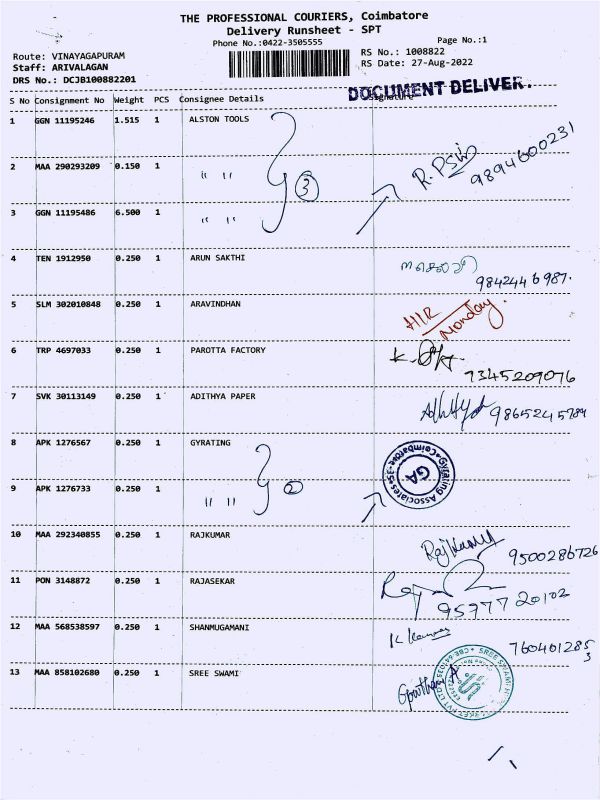 THE PROFESSIONAL COURIERS, Coimbatore
Delivery Runsheet - SPT
Phone No.:0422-3505555 Page No.:1
Route: VINAYAGAPURAM RS No.: 1008822
Staff: ARIVALAGAN RS Date: 27-Aug-2022
DRS No.: DCJB100882201
DOCUMENT DELIVER.
S No Consignment No Weight PCS Consignee Details Signature
1 GGN 11195246 1.515 1 ALSTON TOOLS
2 MAA 290293209 0.150 1 " " 3 9894600231
3 GGN 11195486 6.500 1 " "
4 TEN 1912950 0.250 1 ARUN SAKTHI 9842446987.
5 SLM 302010848 0.250 1 ARAVINDHAN Monday.
6 TRP 4697033 0.250 1 PAROTTA FACTORY 7345209076
7 SVK 30113149 0.250 1 ADITHYA PAPER 9865245789
8 APK 1276567 0.250 1 GYRATING
GA
Gyrating Associates
Coimbatore
9 APK 1276733 0.250 1 " " 2
10 MAA 292340855 0.250 1 RAJKUMAR Rajkumar 9500286726
11 PON 3148872 0.250 1 RAJASEKAR 9597720102
12 MAA 568538597 0.250 1 SHANMUGAMANI 7604012853
13 MAA 858102680 0.250 1 SREE SWAMI